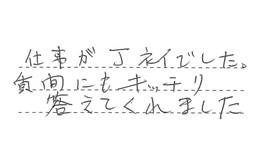 仕事が丁ネイでした。
質問にもキッチリ
答えてくれました